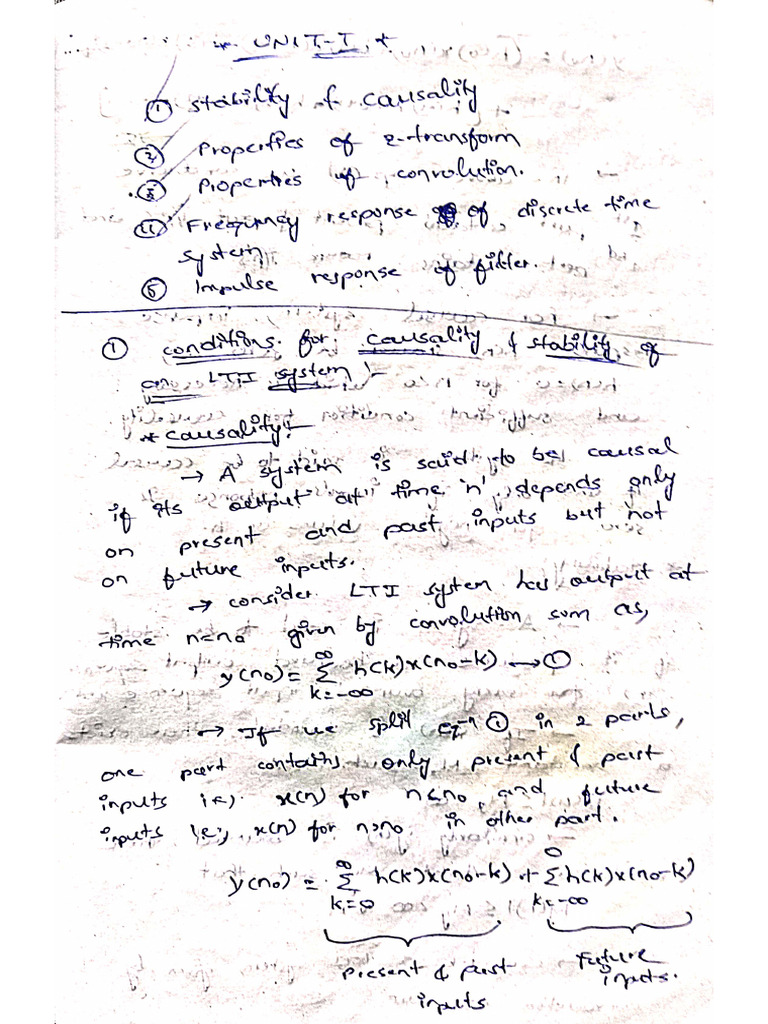 * UNIT-I *
① Stability & causality
② Properties of z-transform
③ Properties of convolution.
④ Frequency response of discrete time
system
⑤ Impulse response of filter.
① conditions for causality & stability of
an LTI system :-
* causality:-
→ A system is said to be causal
if its output at time 'n' depends only
on present and past inputs but not
on future inputs.
→ consider LTI system has output at
time n=n₀ given by convolution sum as,
y(n₀) = ∞ Σ k=-∞ h(k)x(n₀-k) → ①
→ If we split eq-n ① in 2 parts,
one part contains only present & past
inputs ie, x(n) for n≤n₀ and future
inputs ie; x(n) for n>n₀ in other part.
y(n₀) = ∞ Σ k=0 h(k)x(n₀-k) + 0 Σ k=-∞ h(k)x(n₀-k)
Present & past Future
inputs inputs.